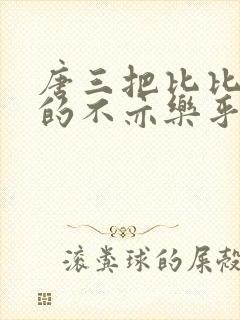 唐三把比比
的不亦樂乎
滚粪球的屎殼